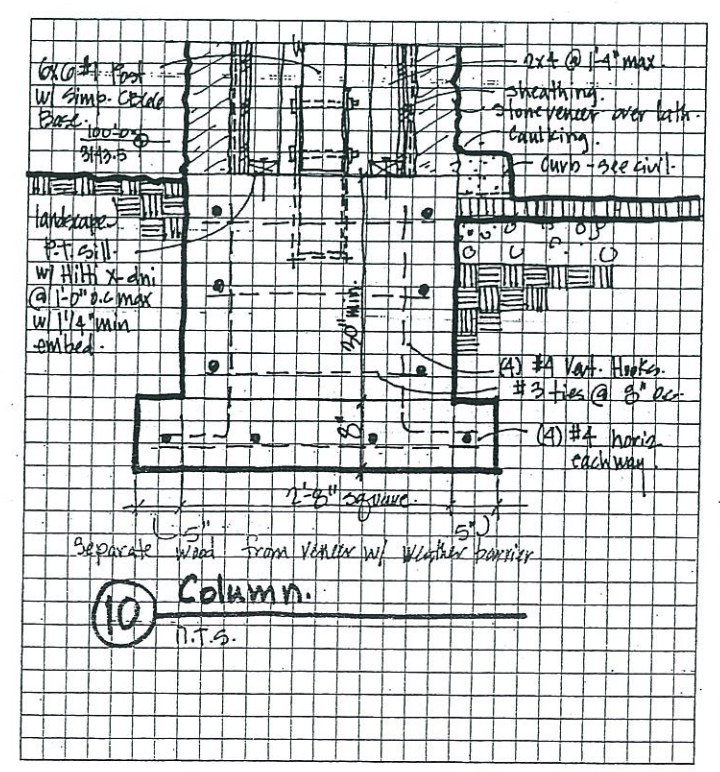 6x6 #1 Post
w/ Simp. CB66
Base.
100'-0"
3143.5
landscape
P.T. Sill
w/ Hilti X-dni
@ 1'-0" o.c max
w/ 1 1/4" min
embed.
2x4 @ 1'-4" max.
sheathing.
stone veneer over lath.
Caulking.
Curb - see civil.
30" min.
8"
(4) #4 Vert. Hooks.
#3 ties @ 8" o.c.
(4) #4 horiz
each way.
2'-8" square.
5"
5"
Separate wood from veneer w/ weather barrier
10
Column.
N.T.S.